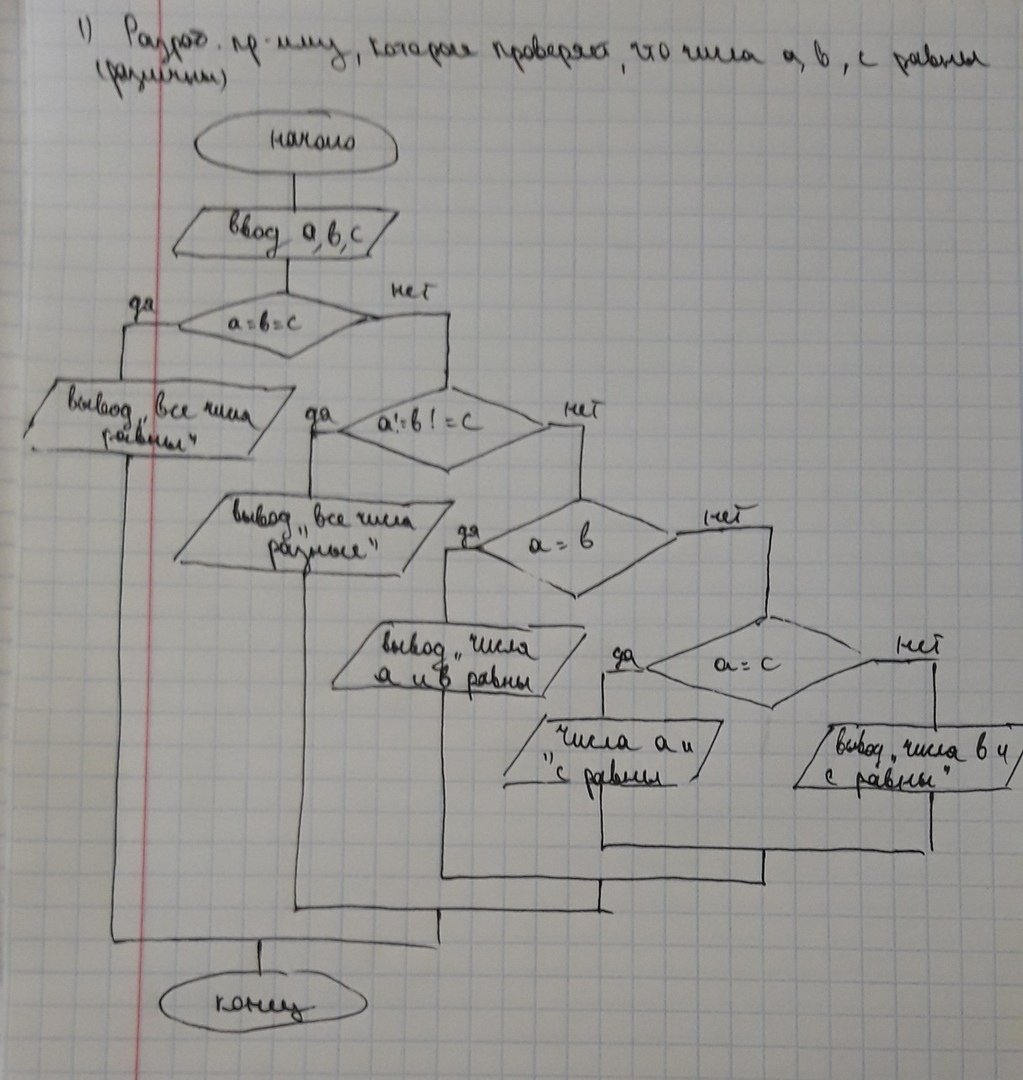 1) Разраб. пр-мму, которая проверяет, что числа a, b, c равны
(различны)
начало
ввод a, b, c
да
нет
a=b=c
вывод „все числа
равны"
да
нет
a!=b!=c
вывод „все числа
разные"
да
нет
a = b
вывод „числа
a и b равны
да
нет
a = c
числа a и
"c равны
вывод „числа b и
c равны"
конец